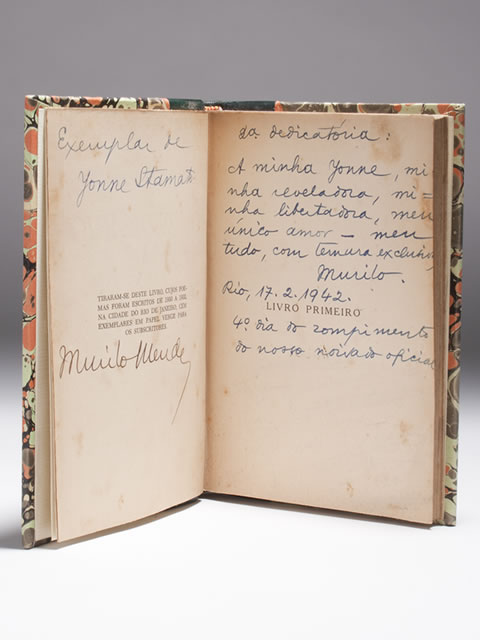 Exemplar de
Yonne Stamat
TIRARAM-SE DESTE LIVRO, CUJOS POE-
MAS FORAM ESCRITOS DE A
NA CIDADE DO RIO DE JANEIRO CEM
EXEMPLARES EM PAPEL VERGÉ PARA
OS SUBSCRITORES.
Murilo Mendes
2a. dedicatória:
A minha Yonne, mi-
nha reveladora, mi=
nha libertadora, meu
único amor — meu
tudo, com ternura exclusiva,
Murilo.
Rio, 17.2.1942.
LIVRO PRIMEIRO
4º dia do rompimento
do nosso noivado oficial